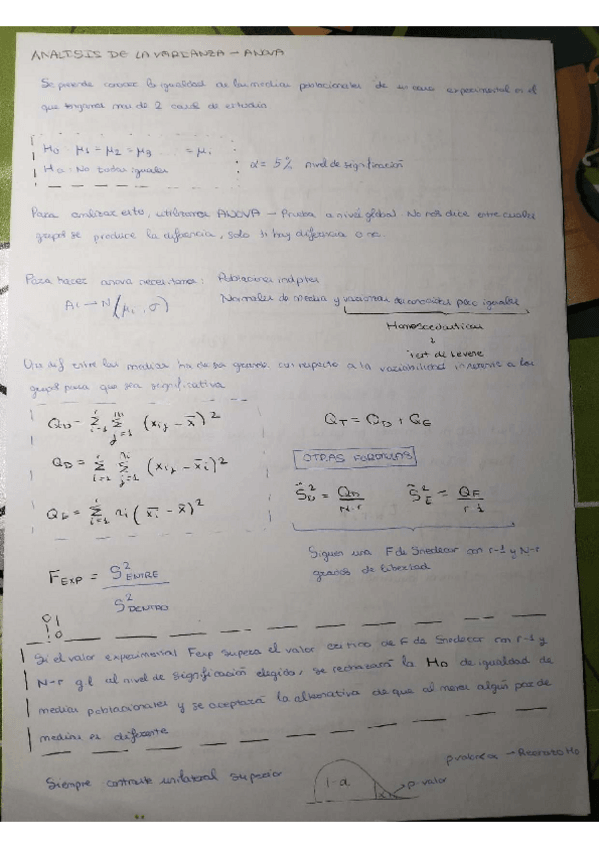 ANALISIS DE LA VARIANZA - ANOVA
Se pretende conocer la igualdad de las medias poblacionales de un caso experimental en el
que tengamos mas de 2 casos de estudio.
H0: μ1 = μ2 = μ3 = μi
Ha: No todas iguales
α = 5% nivel de significación
Para analizar esto, utilizamos ANOVA - Prueba a nivel global. No nos dice entre cuales
grupos se produce la diferencia, solo si hay diferencia o no.
Para hacer anova necesitamos: Poblaciones indptes
Ai → N(μi, σ)
Normales de media y varianzas desconocidas pero iguales
Homoscedasticas
Test de Levene
Una dif entre las medias ha de ser grande con respecto a la variabilidad inherente a los
grupos para que sea significativa
Q = Σ i=1 Σ j=1 (xij - x̄)²
QD = Σ i=1 Σ j=1 (xij - x̄i)²
Q = Σ i=1 ni (x̄i - x̄)²
QT = QD + QE
OTRAS FORMULAS
Ŝ² = QD / N-r
ŜE² = QE / r-1
Siguen una F de Snedecor con r-1 y N-r
grados de libertad
FEXP = S²ENTRE / S²DENTRO
Si el valor experimental Fexp supera el valor critico de F de Snedecor con r-1 y
N-r gl al nivel de significación elegido, se rechazará la H0 de igualdad de
medias poblacionales y se aceptará la alternativa de que al menos algún par de
medias es diferente
Siempre contraste unilateral superior
1-α
p-valor
pvalor<α → Rechazo H0